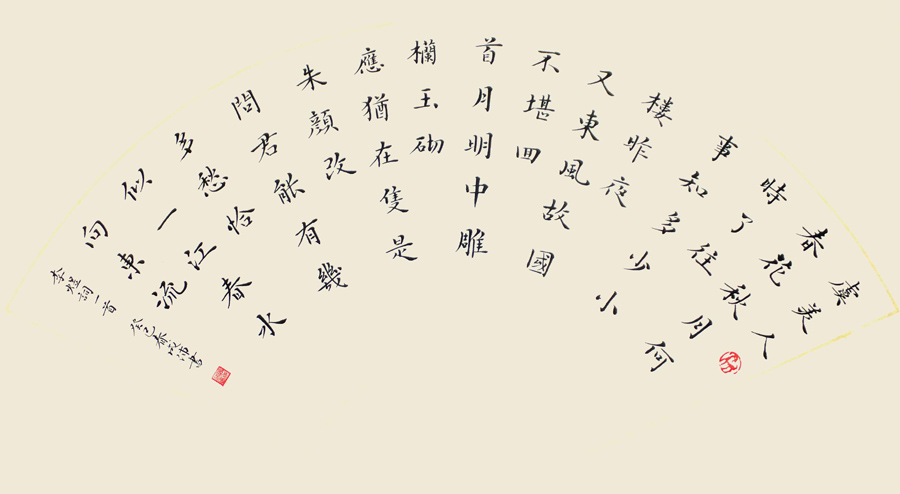 虞美人
春花秋月何
時了往
事知多少小
楼昨夜
又東風故國
不堪回
首月明中雕
欄玉砌
應猶在隻是
朱顔改
問君能有幾
多愁恰
似一江春水
向東流
李煜詞一首 癸巳春書